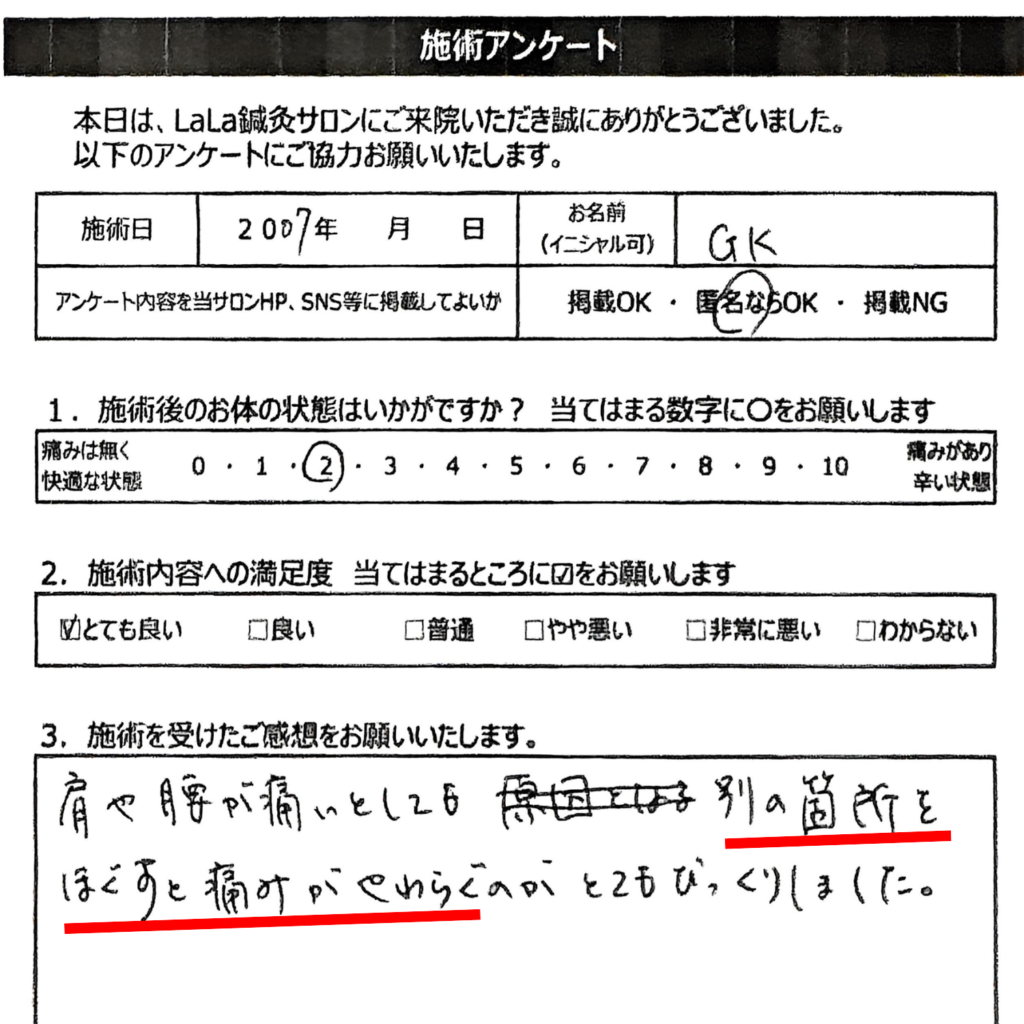 施術アンケート
本日は、LaLa鍼灸サロンにご来院いただき誠にありがとうございました。
以下のアンケートにご協力お願いいたします。
施術日 2007年 月 日 お名前 (イニシャル可) GK
アンケート内容を当サロンHP、SNS等に掲載してよいか 掲載OK ・ 匿名ならOK ・ 掲載NG
1. 施術後のお体の状態はいかがですか? 当てはまる数字に〇をお願いします
痛みは無く 快適な状態 0 ・ 1 ・ 2 ・ 3 ・ 4 ・ 5 ・ 6 ・ 7 ・ 8 ・ 9 ・ 10 痛みがあり 辛い状態
2. 施術内容への満足度 当てはまるところに☑をお願いします
☑とても良い □良い □普通 □やや悪い □非常に悪い □わからない
3. 施術を受けたご感想をお願いいたします。
肩や腰が痛いとしても 原因とはる 別の箇所を
ほぐすと痛みがやわらぐのが とてもびっくりしました。